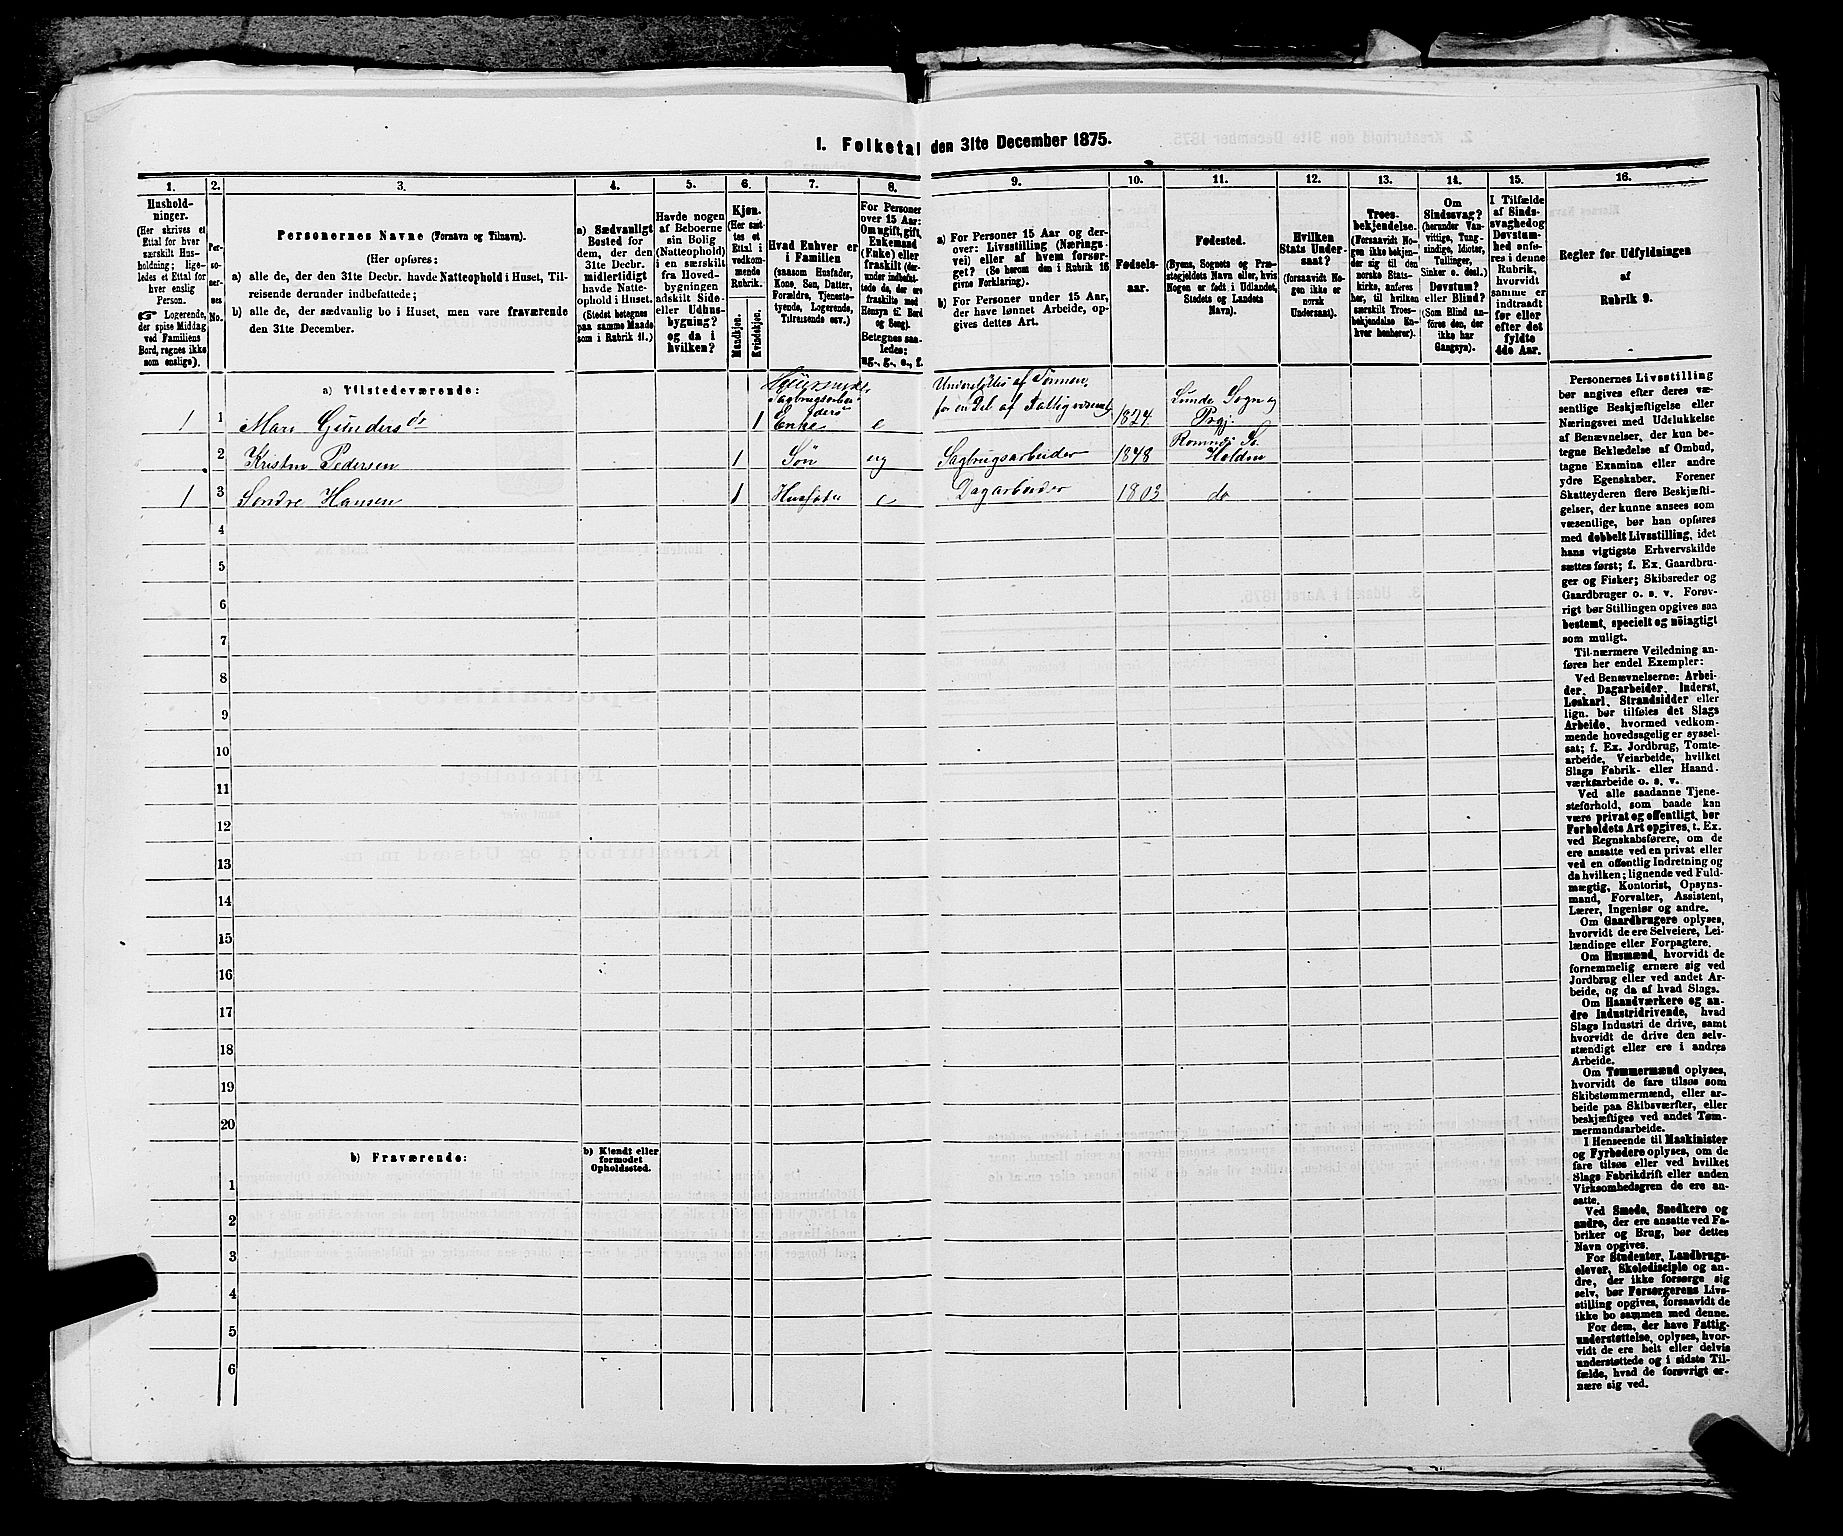 1. Folketal den 31te December 1875.
1.
2.
3.
4.
5.
6.
7.
8.
9.
10.
11.
12.
13.
14.
15.
16.
Hushold-
ninger.
(Her skrives et
Ettal for hver
særskilt Hus-
holdning; lige-
ledes et Ettal for
hver enslig
Person.
☞ Logerende,
der spise Middag
ved Familiens
Bord, regnes ikke
som enslige).
Per-
so-
ner-
nes
No.
Personernes Navne (Fornavn og Tilnavn).
(Her opføres:
a) alle de, der den 31te Decbr. havde Natteophold i Huset, Til-
reisende derunder indbefattede;
b) alle de, der sædvanlig bo i Huset, men vare fraværende
den 31te December.
a) Sædvanligt
Bosted for
dem, der den
31te Decbr.
midlertidigt
havde Natte-
ophold i Huset.
(Stedet betegnes
paa samme Maade
som i Rubrik 11.)
Havde nogen
af Beboerne
sin Bolig
(Natteophold)
i en særskilt
fra Hoved-
bygningen
adskilt Side-
eller Udhus-
bygning?
og da i
hvilken?
Kjøn.
(Her sæt-
tes et
Ettal i
vedkom-
mende
Rubrik.
Mandkjøn.
Kvindekjøn.
Hvad Enhver er
i Familien
(saasom Husfader,
Kone, Søn, Datter,
Forældre, Tjeneste-
tyende, Logerende,
Tilreisende osv.)
For Personer
over 15 Aar:
Om ugift, gift,
Enkemand
(Enke) eller
fraskilt (der-
under indbefat-
tede de, der ere
fraskilte med
Hensyn til Bord
og Seng).
Betegnes saa-
ledes:
ug., g., e., f.
a) For Personer 15 Aar og der-
over: Livsstilling (Nærings-
vei) eller af hvem forsør-
get? (Se herom den i Rubrik 16
givne Forklaring).
b) For Personer under 15 Aar,
der have lønnet Arbeide, op-
gives dettes Art.
Fødsels-
aar.
Fødested.
(Byens, Sognets og Præ-
stegjeldets Navn eller, hvis
Nogen er født i Udlandet,
Stedets og Landets
Navn).
Hvilken
Stats Under-
saat?
(forsaavidt No-
gen ikke er
norsk
Undersaat).
Troes-
bekjendelse.
(Forsaavidt No-
gen ikke bekjen-
der sig til den
norske Stats-
kirke, anføres
her, til hvilken
særskilt Troes-
bekjendelse En-
hver henhører).
Om
Sindssvag?
(herunder Van-
vittige, Tung-
sindige, Idioter,
Tullinger,
Sinker o. desl.)
Døvstum?
eller Blind?
(Som Blind an-
føres den, der
ikke har
Gangsyn).
I Tilfælde
af Sinds-
svaghed og
Døvstum-
hed anfø-
res i denne
Rubrik,
hvorvidt
samme er
indtraadt
før eller
efter det
fyldte
4de Aar.
Regler for Udfyldningen
af
Rubrik 9.
a) Tilstedeværende:
1 1 Mari Gundersdr 1 Sagbrugsarbei-
ders
Enke e Understøttes af Sønnen,
for en Del af Fattigvæsenet 1824. Lunde Sogn og
Prgj.
2 Kristen Pedersen 1 Søn ug Sagbrugsarbeider 1848 Romnæs So.
Holden
1 3 Søndre Hansen 1 Husfader e Dagarbeider 1803 do
4
5
6
7
8
9
10
11
12
13
14
15
16
17
18
19
20
b) Fraværende:
b) Kjendt eller
formodet
Opholdssted.
1
2
3
4
5
6
Personernes Livsstilling
bør angives efter deres væ-
sentlige Beskjæftigelse eller
Næringsvei med Udelukkelse
af Benævnelser, der kun be-
tegne Beklædelse af Ombud,
tagne Examina eller andre
ydre Egenskaber. Forener
Skatteyderen flere Beskjæfti-
gelser, der kunne ansees som
væsentlige, bør han opføres
med dobbelt Livsstilling, idet
hans vigtigste Erhvervskilde
sættes først; f. Ex. Gaardbru-
ger og Fisker; Skibsreder og
Gaardbruger o. s. v. Forøv-
rigt bør Stillingen opgives saa
bestemt, specielt og nøiagtigt
som muligt.
Til nærmere Veiledning an-
føres her endel Exempler:
Ved Benævnelserne: Arbei-
der, Dagarbeider, Inderst,
Løskarl, Strandsidder eller
lign. bør tilføies det Slags
Arbeide, hvormed vedkom-
mende hovedsagelig er syssel-
sat; f. Ex. Jordbrug, Tomte-
arbeide, Veiarbeide, hvilket
Slags Fabrik- eller Haand-
værksarbeide o. s. v.
Ved alle saadanne Tjene-
steforhold, som baade kan
være privat og offentligt, bør
Forholdets Art opgives, f. Ex.
ved Regnskabsførere, om de
ere ansatte ved en privat eller
ved en offentlig Indretning og
da hvilken; lignende ved Fuld-
mægtig, Kontorist, Opsyns-
mand, Forvalter, Assistent,
Lærer, Ingeniør og andre.
Om Gaardbrugere oplyses,
hvorvidt de ere Selveiere, Lei-
lændinge eller Forpagtere.
Om Husmænd, hvorvidt de
fornemmelig ernære sig ved
Jordbrug eller ved andet Ar-
beide, og da af hvad Slags.
Om Haandværkere og an-
dre Industridrivende, hvad
Slags Industri de drive, samt
hvorvidt de drive den selv-
stændigt eller ere i andres
Arbeide.
Om Tømmermænd oplyses,
hvorvidt de fare tilsøs som
Skibstømmermænd, eller ar-
beide paa Skibsværfter, eller
beskjæftiges ved andet Tøm-
mermandsarbeide.
I Henseende til Maskinister
og Fyrbødere oplyses, om de
fare tilsøs eller ved hvilket
Slags Fabrikdrift eller anden
Virksomhedsgren de ere an-
satte.
Ved Smede, Snedkere og
andre, der ere ansatte ved Fa-
briker og Brug, bør dettes
Navn opgives.
For Studenter, Landbrugs-
elever, Skoledisciple og an-
dre, der ikke forsørge sig
selv, bør Forsørgerens Livs-
stilling opgives, forsaavidt de
ikke bo sammen med denne.
For dem, der have Fattig-
understøttelse, oplyses, hvor-
vidt de ere helt eller delvis
understøttede og i sidste Til-
fælde, hvad de forøvrigt er-
nære sig ved.